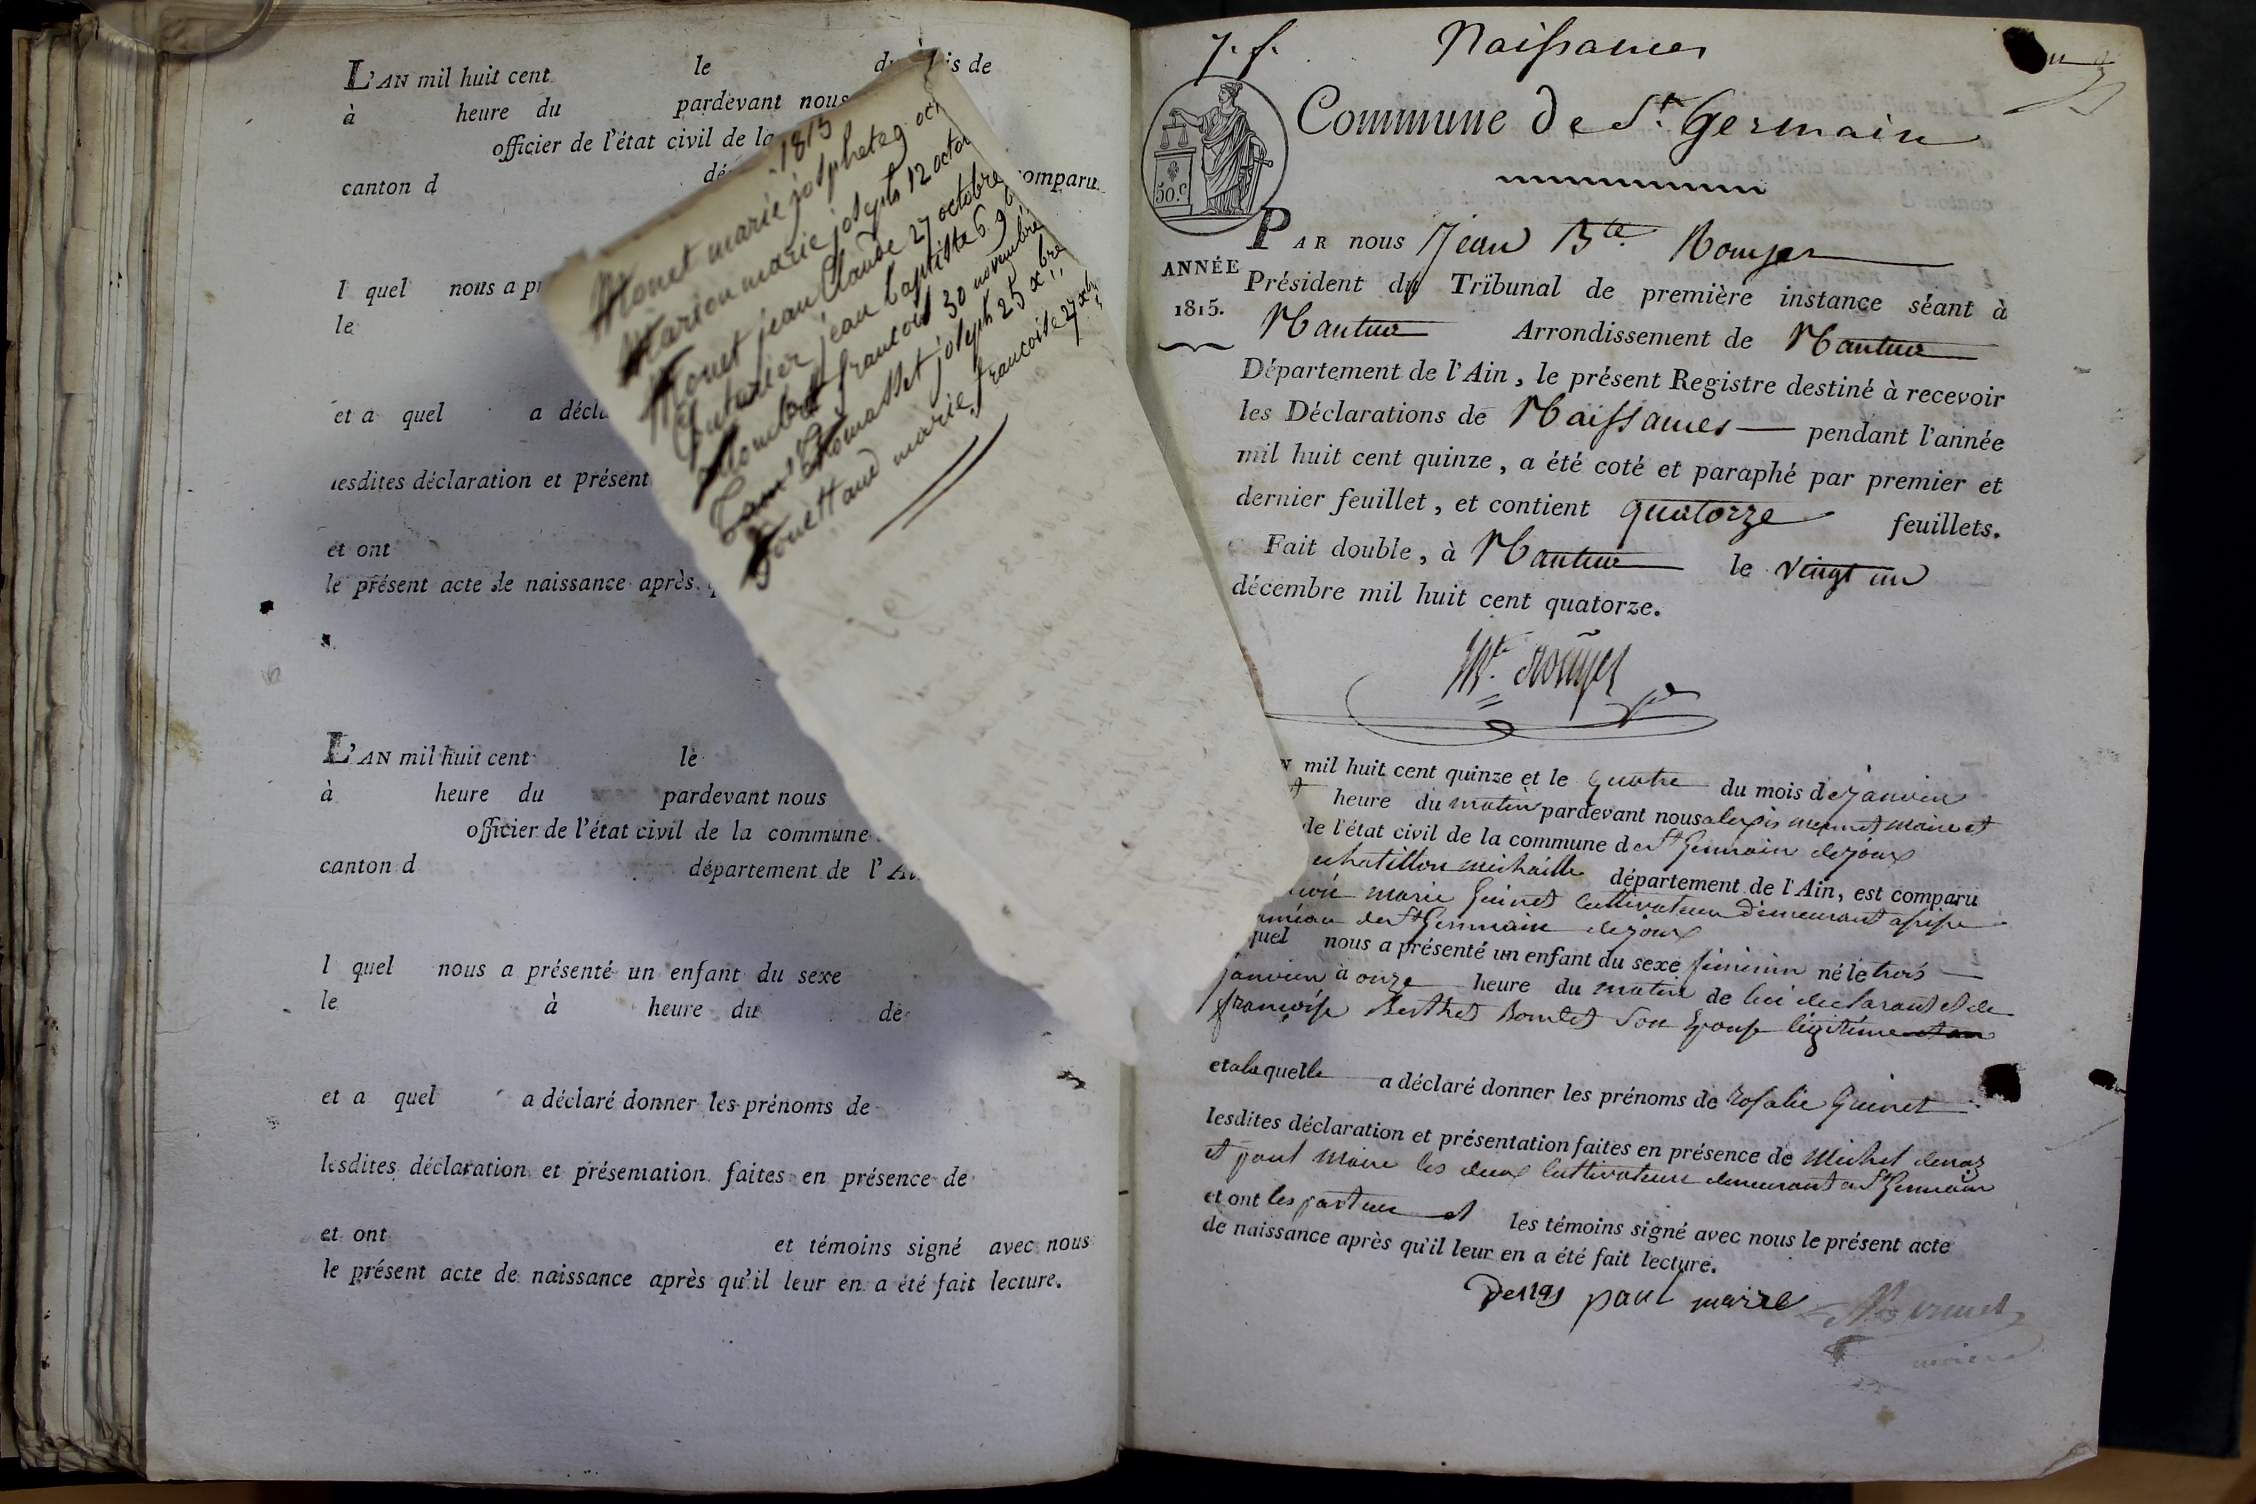 L'AN mil huit cent le du mois de
à heure du pardevant nous
officier de l'état civil de la
canton d dé comparu
l quel nous a pr
le
et a quel a décla
lesdites déclaration et présent
et ont
le présent acte de naissance après
L'AN mil huit cent le
à heure du pardevant nous
officier de l'état civil de la commune
canton d département de l'Ai
l quel nous a présenté un enfant du sexe
le à heure du de
et a quel a déclaré donner les prénoms de
lesdites déclaration et présentation faites en présence de
et ont et témoins signé avec nous
le présent acte de naissance après qu'il leur en a été fait lecture.
1815
Monet marie josphete 9 oct
Marion marie joseph 12 octo
Monet jean Claude 27 octobre
jean baptiste 6 9b
francois 30 novembre
Thomasset joseph 25 xbre
marie francoise 27 xb
7. f. Naissances
Commune de St. Germain
50.c
PAR nous Jean Bte. Rouyer
ANNÉE
1815.
Président du Tribunal de première instance séant à
Nantua Arrondissement de Nantua
Département de l'Ain, le présent Registre destiné à recevoir
les Déclarations de Naissances pendant l'année
mil huit cent quinze, a été coté et paraphé par premier et
dernier feuillet, et contient quatorze feuillets.
Fait double, à Nantua le vingt un
décembre mil huit cent quatorze.
Bte. Rouyer
N mil huit cent quinze et le quatre du mois de janvier
heure du matin pardevant nous alexis mermet maire et
de l'état civil de la commune de St Germain de joux
chatillon michaille département de l'Ain, est comparu
marie Guinet cultivateur demeurant
hameau de St Germain de joux
quel nous a présenté un enfant du sexe féminin né le trois
janvier à onze heure du matin de lui déclarant et de
françoise Berthet Bondet son épouse légitime
et a laquelle a déclaré donner les prénoms de rosalie Guinet
lesdites déclaration et présentation faites en présence de Michel
et paul Maire les deux cultivateurs demeurant a St Germain
et ont les parties et les témoins signé avec nous le présent acte
de naissance après qu'il leur en a été fait lecture.
paul maire Mermet